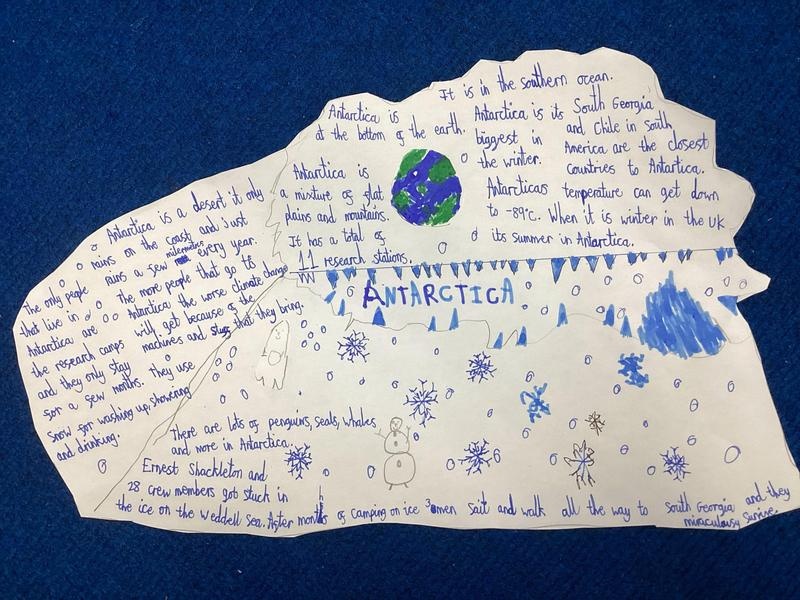 It is in the southern ocean.
Antarctica is
at the bottom of the earth.
Antarctica is
a mixture of flat
plains and mountains.
It has a total of
11 research stations.
Antarctica is its
biggest in
the winter.
South Georgia
and Chile in South
America are the closest
countries to Antartica.
Antarticas temperature can get down
to -89°C. When it is winter in the UK
its summer in Antarctica.
Antarctica is a desert it only
rains on the coast and just
rains a few milermeters every year.
The more people that go to
Antartica the worse climate change
will get because of the
machines and that they bring.
The only people
that live in
Antartica are
the research camps
and they only stay
for a few months. they use
snow for washing up, showering
and drinking.
ANTARCTICA
There are lots of penguins, seals, whales
and more in Antarctica.
Ernest Shackleton and
28 crew members got stuck in
the ice on the Weddell sea. After months of camping on ice 3 men sait and walk all the way to South Georgia and they
miraculousy survive.